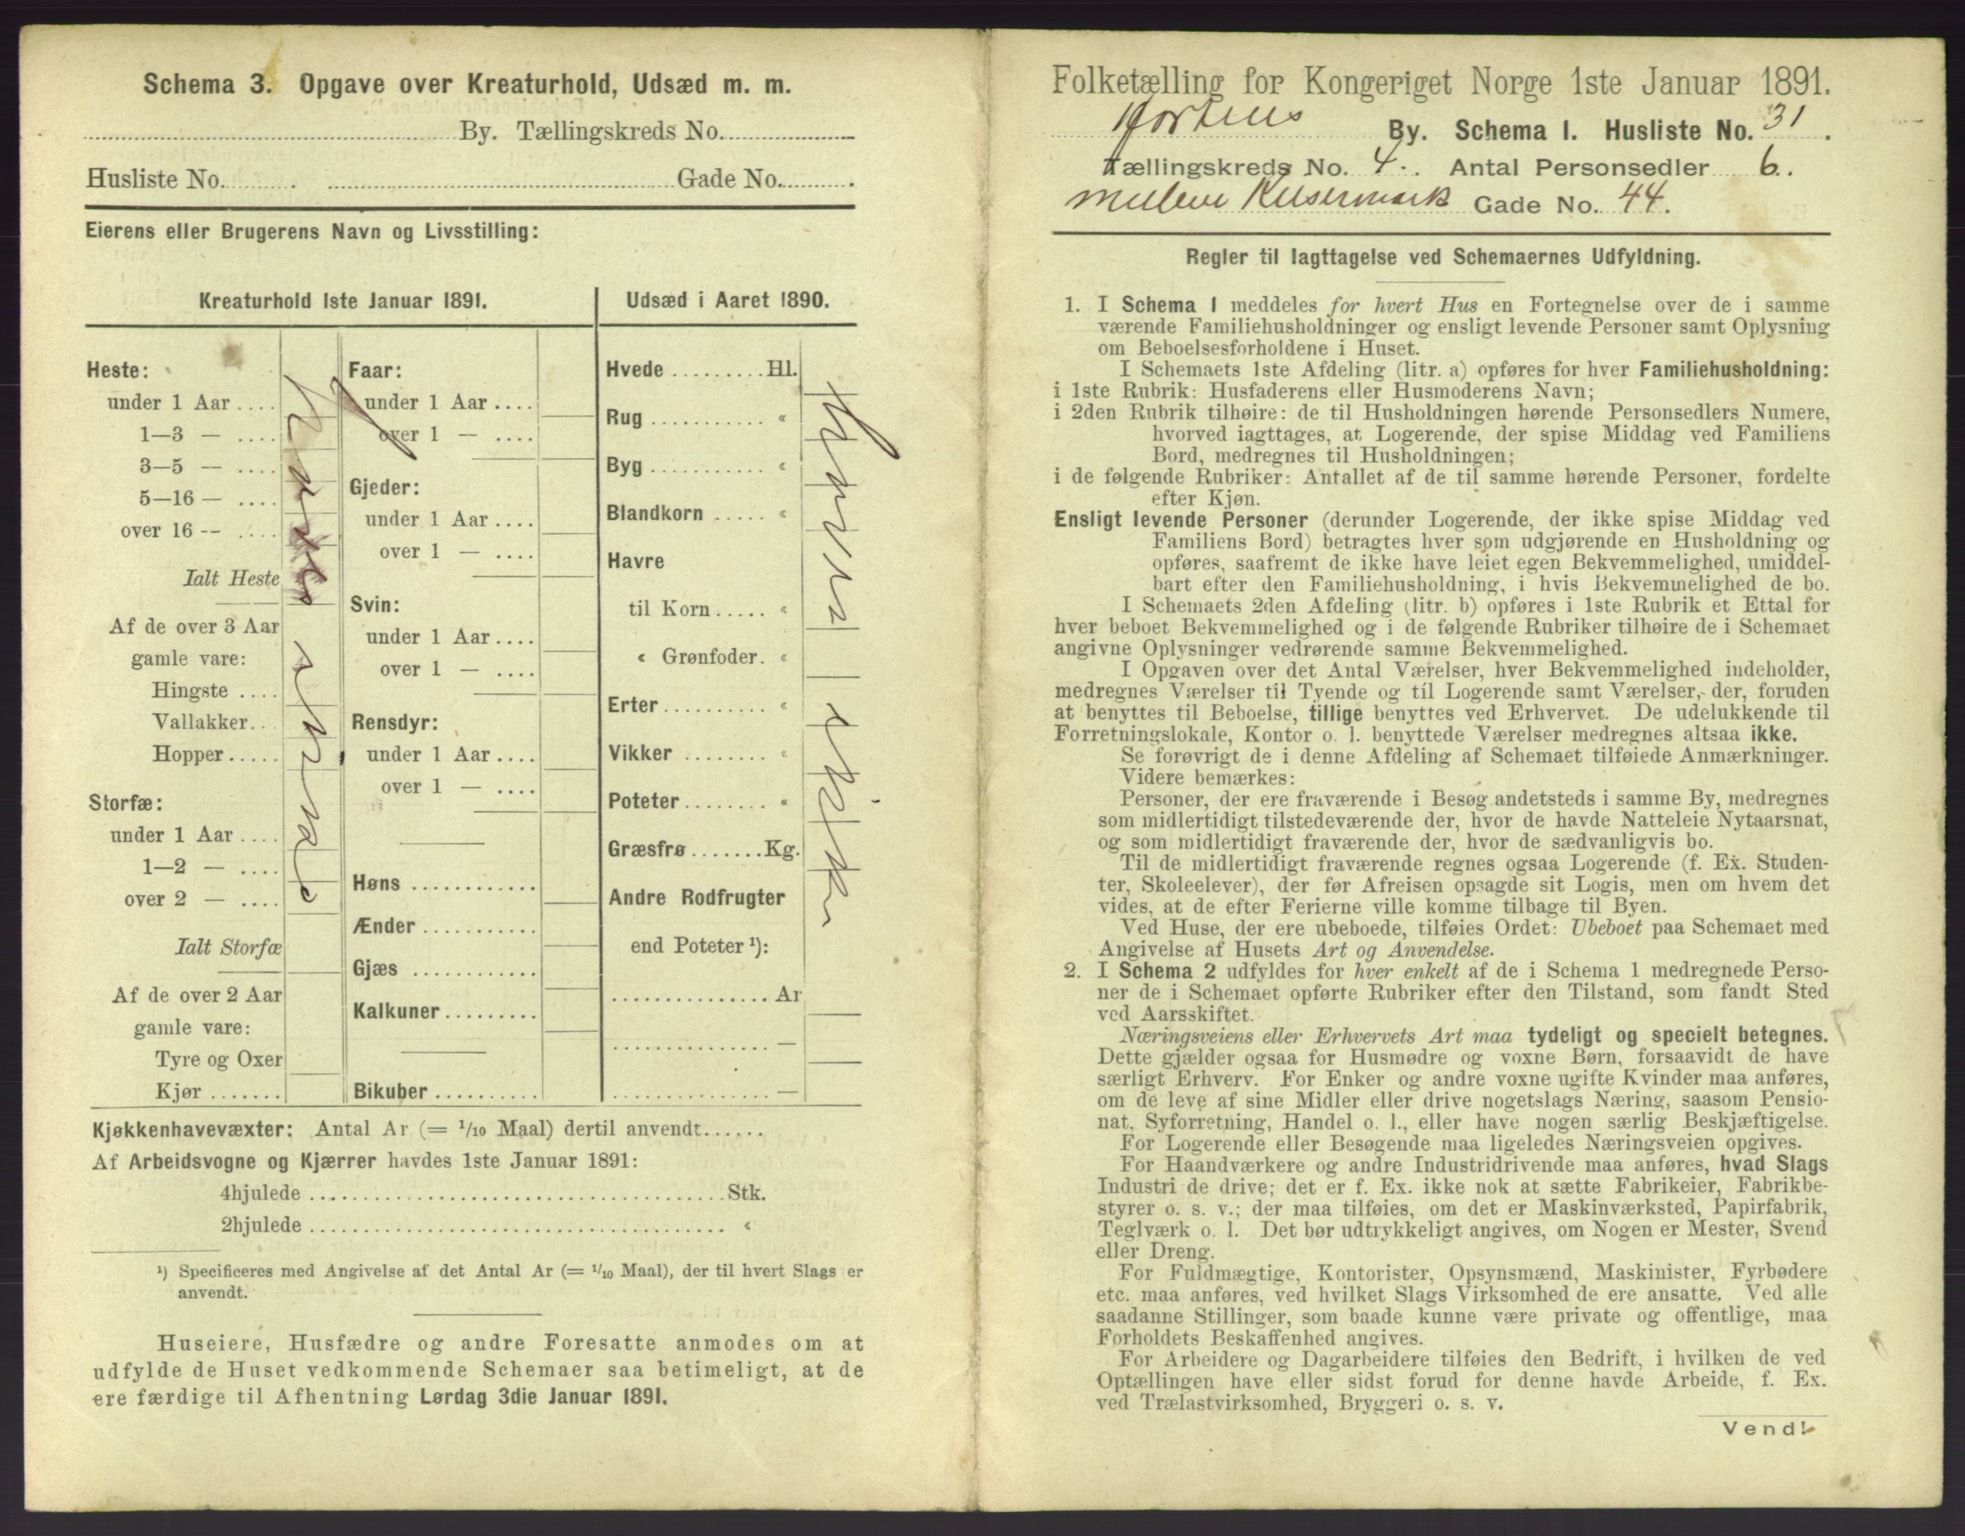 Schema 3. Opgave over Kreaturhold, Udsæd m. m.
By. Tællingskreds No.
Husliste No. Gade No.
Eierens eller Brugerens Navn og Livsstilling:
Kreaturhold 1ste Januar 1891.
Heste:
under 1 Aar
1—3 —
3—5 —
5—16 —
over 16 —
Ialt Heste
Af de over 3 Aar
gamle vare:
Hingste
Vallakker
Hopper
Storfæ:
under 1 Aar
1—2 —
over 2 —
Ialt Storfæ
Af de over 2 Aar
gamle vare:
Tyre og Oxer
Kjør
Faar:
under 1 Aar
over 1 —
Gjeder:
under 1 Aar
over 1 —
Svin:
under 1 Aar
over 1 —
Rensdyr:
under 1 Aar
over 1 —
Høns
Ænder
Gjæs
Kalkuner
Bikuber
Udsæd i Aaret 1890.
Hvede Hl.
Rug "
Byg "
Blandkorn "
Havre
til Korn "
" Grønfoder "
Erter "
Vikker "
Poteter "
Græsfrø Kg.
Andre Rodfrugter
end Poteter ¹):
Ar
—
—
Kjøkkenhavevæxter: Antal Ar (= 1/10 Maal) dertil anvendt
Af Arbeidsvogne og Kjærrer havdes 1ste Januar 1891:
4hjulede Stk.
2hjulede "
¹) Specificeres med Angivelse af det Antal Ar (= 1/10 Maal), der til hvert Slags er
anvendt.
Huseiere, Husfædre og andre Foresatte anmodes om at
udfylde de Huset vedkommende Schemaer saa betimeligt, at de
ere færdige til Afhentning Lørdag 3die Januar 1891.
Folketælling for Kongeriget Norge 1ste Januar 1891.
Hortens By. Schema 1. Husliste No. 31.
Tællingskreds No. 4. Antal Personsedler 6.
Gade No. 44.
Regler til Iagttagelse ved Schemaernes Udfyldning.
1. I Schema 1 meddeles for hvert Hus en Fortegnelse over de i samme
værende Familiehusholdninger og ensligt levende Personer samt Oplysning
om Beboelsesforholdene i Huset.
I Schemaets 1ste Afdeling (litr. a) opføres for hver Familiehusholdning:
i 1ste Rubrik: Husfaderens eller Husmoderens Navn;
i 2den Rubrik tilhøire: de til Husholdningen hørende Personsedlers Numere,
hvorved iagttages, at Logerende, der spise Middag ved Familiens
Bord, medregnes til Husholdningen;
i de følgende Rubriker: Antallet af de til samme hørende Personer, fordelte
efter Kjøn.
Ensligt levende Personer (derunder Logerende, der ikke spise Middag ved
Familiens Bord) betragtes hver som udgjørende en Husholdning og
opføres, saafremt de ikke have leiet egen Bekvemmelighed, umiddel-
bart efter den Familiehusholdning, i hvis Bekvemmelighed de bo.
I Schemaets 2den Afdeling (litr. b) opføres i 1ste Rubrik et Ettal for
hver beboet Bekvemmelighed og i de følgende Rubriker tilhøire de i Schemaet
angivne Oplysninger vedrørende samme Bekvemmelighed.
I Opgaven over det Antal Værelser, hver Bekvemmelighed indeholder,
medregnes Værelser til Tyende og til Logerende samt Værelser, der, foruden
at benyttes til Beboelse, tillige benyttes ved Erhvervet. De udelukkende til
Forretningslokale, Kontor o. l. benyttede Værelser medregnes altsaa ikke.
Se forøvrigt de i denne Afdeling af Schemaet tilføiede Anmærkninger.
Videre bemærkes:
Personer, der ere fraværende i Besøg andetsteds i samme By, medregnes
som midlertidigt tilstedeværende der, hvor de havde Natteleie Nytaarsnat,
og som midlertidigt fraværende der, hvor de sædvanligvis bo.
Til de midlertidigt fraværende regnes ogsaa Logerende (f. Ex. Studen-
ter, Skoleelever), der før Afreisen opsagde sit Logis, men om hvem det
vides, at de efter Ferierne ville komme tilbage til Byen.
Ved Huse, der ere ubeboede, tilføies Ordet: Ubeboet paa Schemaet med
Angivelse af Husets Art og Anvendelse.
2. I Schema 2 udfyldes for hver enkelt af de i Schema 1 medregnede Perso-
ner de i Schemaet opførte Rubriker efter den Tilstand, som fandt Sted
ved Aarsskiftet.
Næringsveiens eller Erhvervets Art maa tydeligt og specielt betegnes.
Dette gjælder ogsaa for Husmødre og voxne Børn, forsaavidt de have
særligt Erhverv. For Enker og andre voxne ugifte Kvinder maa anføres,
om de leve af sine Midler eller drive nogetslags Næring, saasom Pensio-
nat, Syforretning, Handel o. l., eller have nogen særlig Beskjæftigelse.
For Logerende eller Besøgende maa ligeledes Næringsveien opgives.
For Haandværkere og andre Industridrivende maa anføres, hvad Slags
Industri de drive; det er f. Ex. ikke nok at sætte Fabrikeier, Fabrikbe-
styrer o. s. v.; der maa tilføies, om det er Maskinværksted, Papirfabrik,
Teglværk o. l. Det bør udtrykkeligt angives, om Nogen er Mester, Svend
eller Dreng.
For Fuldmægtige, Kontorister, Opsynsmænd, Maskinister, Fyrbødere
etc. maa anføres, ved hvilket Slags Virksomhed de ere ansatte. Ved alle
saadanne Stillinger, som baade kunne være private og offentlige, maa
Forholdets Beskaffenhed angives.
For Arbeidere og Dagarbeidere tilføies den Bedrift, i hvilken de ved
Optællingen have eller sidst forud for denne havde Arbeide, f. Ex.
ved Trælastvirksomhed, Bryggeri o. s. v.
Vend!